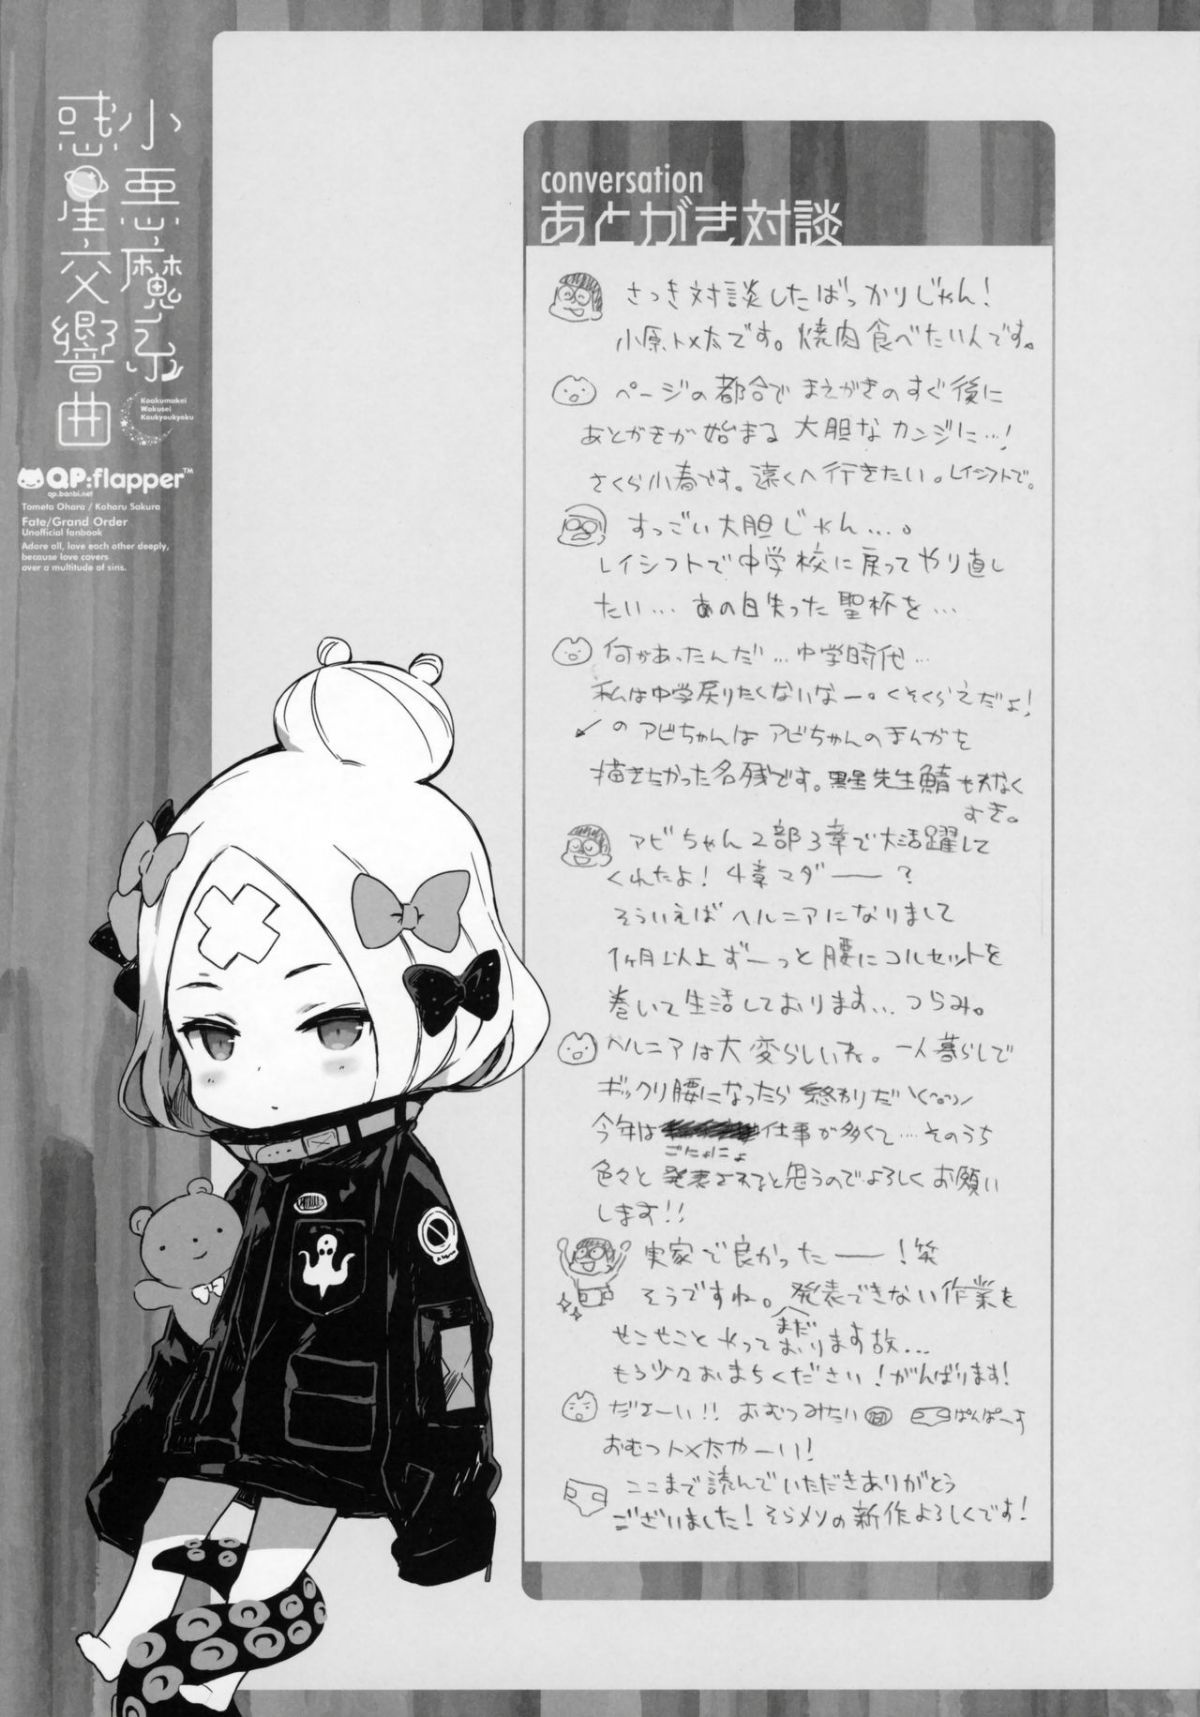 小悪魔系
惑星交響曲
Koakumakei
Wakusei
Koukyoukyoku
QP:flapper™
qp.banbi.net
Tometa Ohara / Koharu Sakura
Fate/Grand Order
Unofficial fanbook
Adore all, love each other deeply,
because love covers
over a multitude of sins.
conversation
あとがき対談
さっき対談したばっかりじゃん!
小原トメ太です。焼肉食べたいんです。
ページの都合でまえがきのすぐ後に
あとがきが始まる大胆なカンジに…!
さくら小春です。遠くへ行きたい。レイシフトで。
すっごい大胆じゃん…。
レイシフトで中学校に戻ってやり直し
たい…あの日失った聖杯を…
何があったんだ…中学時代…
私は中学戻りたくないなー。くそくらえだよ!
↙のアビちゃんはアビちゃんのまんがを
描きたかった名残です。黒星先生鯖せんなく
すぎ。
アビちゃん2部3章で大活躍して
くれたよ!4章マダー?
そういえばヘルニアになりまして
1ヶ月以上ずーっと腰にコルセットを
巻いて生活しております…つらみ。
ヘルニアは大変らしいね。一人暮らしで
ギックリ腰になったら終わりだ\(^o^)/
今年は仕事が多くて…そのうち
ごにょにょ
色々と発表されると思うのでよろしくお願い
します!!
実家で良かったー!笑
そうですね。発表できない作業を
せこせことやってまだおります故…
もう少々おまちください!がんばります!
だよーい!! おむつみたい ぱんぱーす
おむつトメ太やーい!
ここまで読んでいただきありがとう
ございました!そらメソの新作よろしくです!